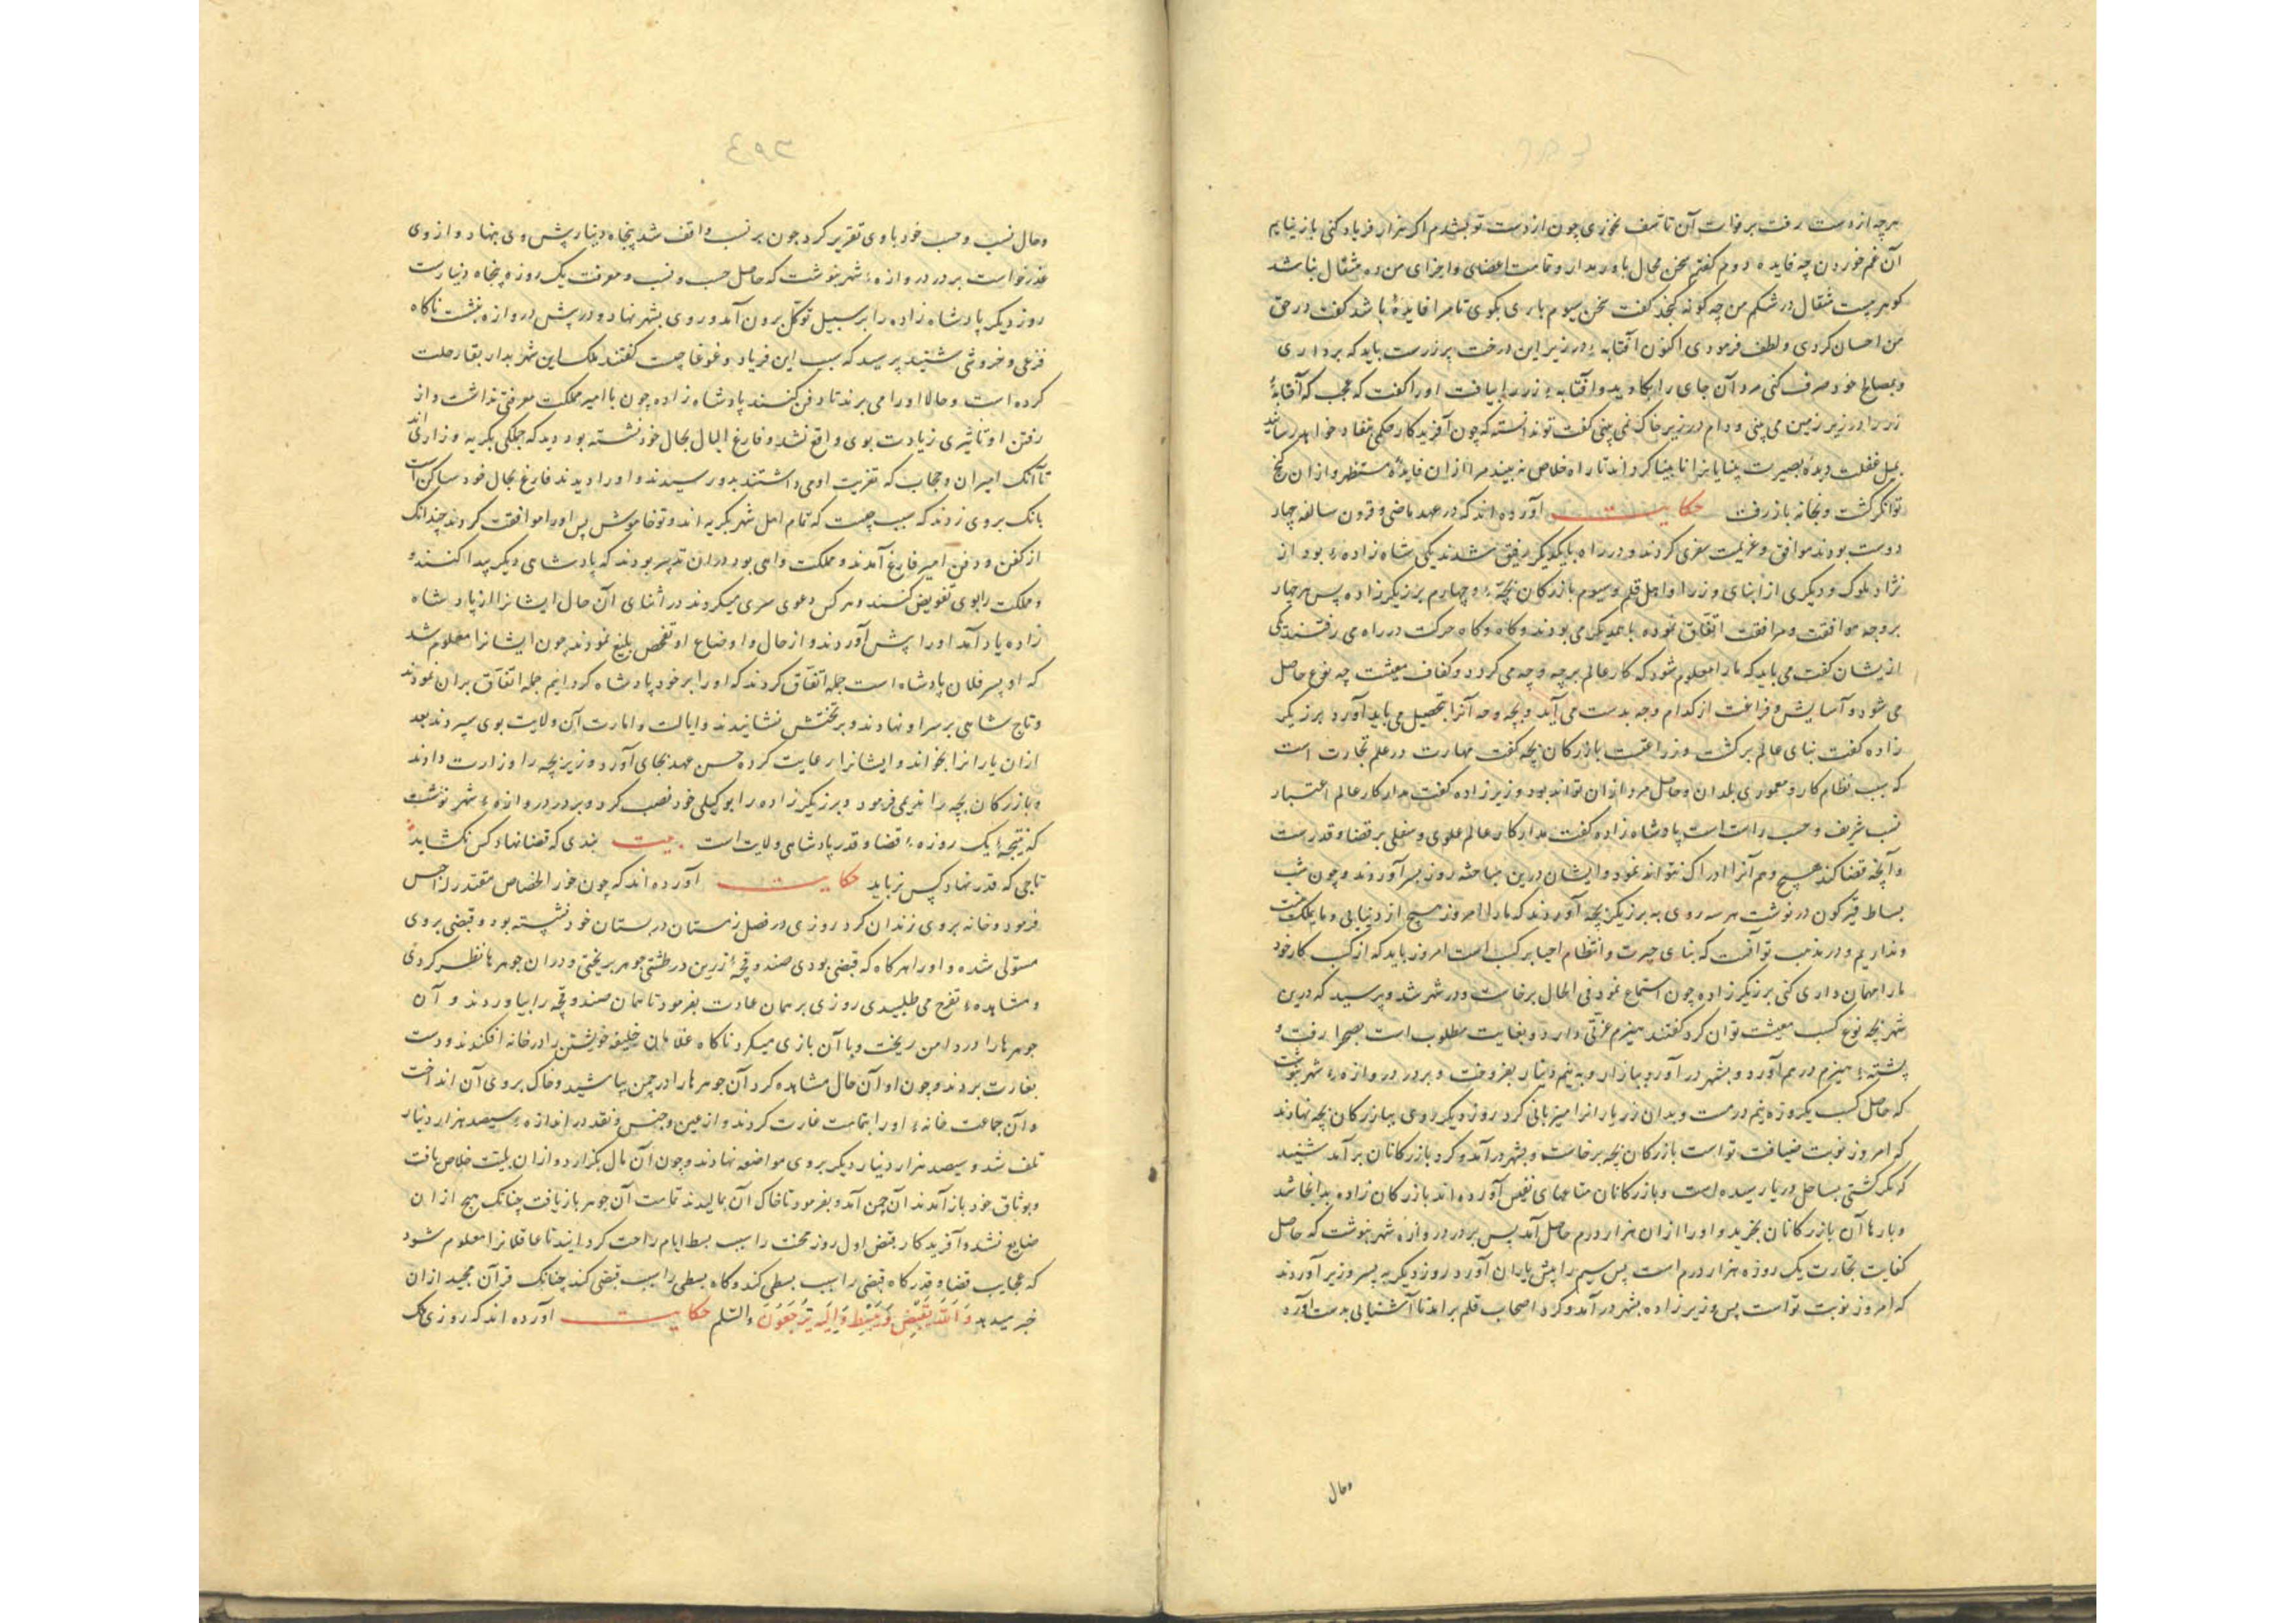 هرچه از دست رفت برفوات آن تاسف نخوری چون از دست تو بشدم اکر هزار فریاد کنی باز نیایم
آن غم خوردن چه فایده دوم کفتم سخن محال باور مدار و تمامت اعضای و اجزای من ده مثقال نباشد
کوهر بیست مثقال در شکم من چه کونه کنجد کفت سخن سیوم باری بکوی تا مرا فایده باشد کفت در حق
من احسان کردی و لطف فرمودی اکنون آفتابه در زیر این درخت پر زرست باید که برداری
و بمصالح خود صرف کنی مرد آن جای را بکاوید و آفتابه زر را بیافت او را کفت که عجب که آفتابهٔ
زر را در زیر زمین می بینی و دام در زیر خاک نمی بینی کفت تو ندانسته که چون آفریدکار حکمی بنفاد خواهد رسانید
بمیل غفلت دیدهٔ بصیرت بینایانرا نابینا کرداند تا راه خلاص نه بیند مرد ازان فایده مستظهر و ازان کنج
توانکر کشت و بخانه باز رفت حکایت آورده اند که در عهد ماضی و قرون سالفه چهار
دوست بودند موافق و عزیمت سفری کردند و در راه بایکدیکر رفیق شدند یکی شاه زاده بود از
نژاد ملوک و دیکری از ابنای وزرا و اهل قلم و سیوم بازرکان بچهٔ و چهارم برزیکر زاده پس هر چهار
بر وجه موافقت و مرافقت اتفاق نموده با همدیکر می بودند و کاه و کاه حرکت در راه می رفتند یکی
ازیشان کفت می باید که ما را معلوم شود که کار عالم بر چه وجه می کردد و کفاف معیشت چه نوع حاصل
می شود و آسایش و فراغت از کدام وجه بدست می آید و بچه وجه آنرا تحصیل می باید آورد برزیکر
زاده کفت بنای عالم بر کشت و زراعت بازرکان بچه کفت مهارت در علم تجارت است
که سبب نظام کار و معموری بلدان و حاصل مرد ازان تواند بود وزیر زاده کفت مدار کار عالم اعتبار
نسب شریف و حسب راست است پادشاه زاده کفت مدار کار عالم علوی و سفلی بر قضا و قدرست
و آنچه قضا کند هیچ وهم آنرا ادراک نتواند نمود و ایشان درین مباحثه روز بسر آوردند و چون شب
بساط قیرکون در نوشت هر سه روی به برزیکر بچه آوردند که ما را امروز هیچ از دنیایی و ما یملک نیست
و نداریم و در مذهب تو آنست که بنای حیرت و انتظام احیا بر کسب است امروز باید که از کسب کار خود
ما را مهمان داری کنی برزیکر زاده چون استماع نمود فی الحال برخاست و در شهر شد و پرسید که درین
شهر بچه نوع کسب معیشت توان کرد کفتند هیزم عزتی دارد و بغایت مطلوب است بصحرا رفت و
پشته هیزم درهم آورد و بشهر درآورد ببازار و به نیم دینار بفروخت و بر در دروازه شهر نبوشت
که حاصل کسب یکروزه نیم درمست و بدان زر یارانرا میزبانی کرد روز دیکر روی ببازرکان بچه نهادند
که امروز نوبت ضیافت تو است بازرکان بچه برخاست و بشهر درآمد و کرد بازرکانان برآمد شنید
که مکر کشتی بساحل دریا رسیده است و بازرکانان متاعهای نفیس آورده اند بازرکان زاده بدانجا شد
و بارها آن بازرکانان بخرید و او را ازان هزار درم حاصل آمد پس بر در دروازه شهر نبوشت که حاصل
کفایت تجارت یک روزه هزار درم است پس سیم را پیش یاران آورد روز دیکر به پسر وزیر آوردند
که امروز نوبت تو است پس وزیر زاده بشهر درآمد و کرد اصحاب قلم برامد تا آشنیایی بدست آورد
وحال
وحال نسب و حسب خود با وی تقریر کرد چون بر نسب واقف شد پنجاه دینار پیش وی بنهاد و از وی
عذر خواست بر در دروازه شهر بنوشت که حاصل حسب و نسب و معرفت یک روزه پنجاه دنیارست
روز دیکر پادشاه زاده را بر سبیل توکل برون آمد و روی بشهر نهاد و در پیش دروازه بنشست ناکاه
فزعی و خروشی شنید پرسید که سبب این فریاد و غوغا چیست کفتند ملک این شهر بدار بقا رحلت
کرده است و حالا او را می برند تا دفن کنند پادشاه زاده چون با امیر مملکت معرفتی نداشت و از
رفتن او تاثیری زیادت بوی واقع نشد و فارغ البال بحال خود نشسته بود دید که جملکی بکریه و زاری اند
تا آنک امیران و حجاب که تعزیت او می داشتند بدو رسیدند و او را دیدند فارغ بحال خود ساکن است
بانک بروی زدند که سبب چیست که تمام اهل شهر بکریه اند و تو خاموش پس او را موافقت کردند چندانک
از کفن و دفن امیر فارغ آمدند و مملکت واهی بود دران تدبیر بودند که پادشاهی دیکر پیدا کنند و
مملکت را بوی تفویض کنند و هر کس دعوی سری میکردند در اثنای آن حال ایشانرا از پادشاه
زاده یاد آمد او را پیش آوردند و از حال و اوضاع او تفحص بلیغ نمودند چون ایشانرا معلوم شد
که او پسر فلان پادشاه است جمله اتفاق کردند که او را بر خود پادشاه کردانیم جمله اتفاق بران نمودند
و تاج شاهی بر سر او نهادند و بر تختش نشانیدند و ایالت و امارت آن ولایت بوی سپردند بعد
ازان یارانرا بخواند و ایشانرا رعایت کرده حسن عهد بجای آورد وزیر بچه را وزارت دادند
و بازرکان بچه را ندیمی فرمود و برزیکر زاده را بوکیلی خود نصب کرد و بر در دروازه شهر نوشت
که نتیجه یک روزه قضا و قدر پادشاهی ولایت است بیت بندی که قضا نهاد کس نکشاید
تاجی که قدر نهاد کس نرباید حکایت آورده اند که چون خوار الخصاص مقتدر را حبس
فرمود و خانه بروی زندان کرد روزی در فصل زمستان در بستان خود نشسته بود و قبضی بروی
مستولی شده و او را هرکاه که قبضی بودی صندوقچهٔ زرین در طشتی جوهر بریختی و دران جوهرها نظر کردی
و مشاهده تفرج می طلبیدی روزی بر همان عادت بفرمود تا همان صندوقچه را بیاوردند و آن
جوهرها را در دامن ریخت و با آن بازی میکرد ناکاه غلامان خلیفه خویشتن را در خانه افکندند و دست
بغارت بردند و چون او آن حال مشاهده کرد آن جوهرها را در چمن بپاشید و خاک بروی آن انداخت
و آن جماعت خانه او را بتمامت غارت کردند و از عین و جنس و نقد در اندازه سیصد هزار دنیار
تلف شد و سیصد هزار دنیار دیکر بروی مواضعه نهادند و چون آن مال بکزارد و ازان بلیت خلاص یافت
و بوثاق خود باز آمد ندان چمن آمد و بفرمود تا خاک آن بمالیدند تمامت آن جوهر باز یافت چنانک هیچ ازان
ضایع نشد و آفریدکار قبض اول روز محنت را سبب بسط ایام راحت کردانید تا عاقلانرا معلوم شود
که عجایب قضا و قدر کاه قبضی را سبب بسطی کند و کاه بسطی را سبب قبضی کند چنانک قرآن مجید ازان
خبر میدهد وَاللهُ یَقْبِضُ وَیَبْسُطُ وَاِلَیْهِ تُرْجَعُونَ والسّلم حکایت آورده اند که روزی ملک